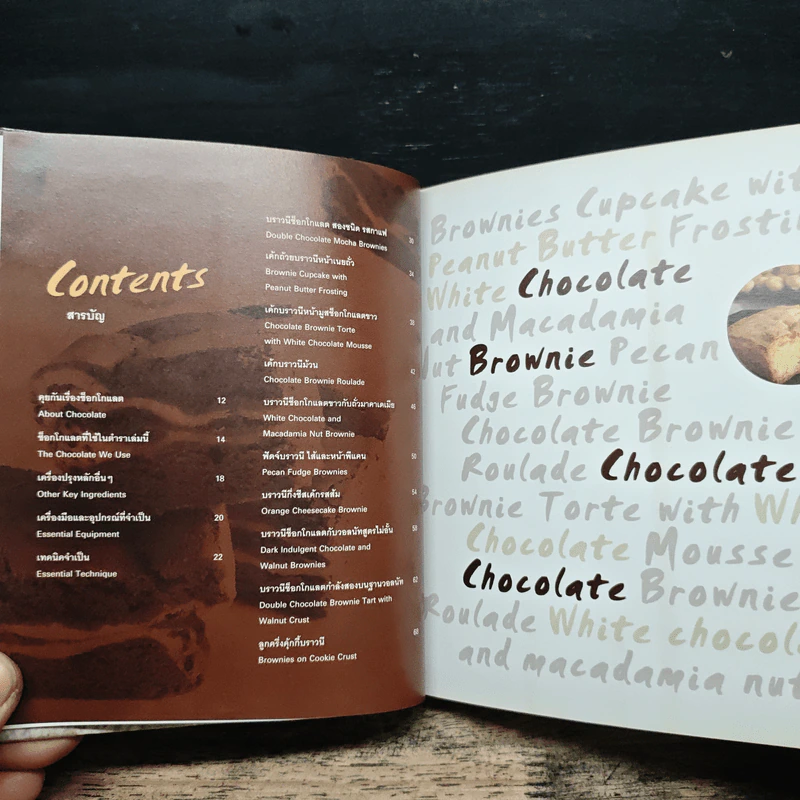 Contents
สารบัญ
คุยกันเรื่องช็อกโกแลต
About Chocolate 12
ช็อกโกแลตที่ใช้ในตำราเล่มนี้
The Chocolate We Use 14
เครื่องปรุงหลักอื่นๆ
Other Key Ingredients 18
เครื่องมือและอุปกรณ์ที่จำเป็น
Essential Equipment 20
เทคนิคจำเป็น
Essential Technique 22
บราวนีช็อกโกแลต สองชนิด รสกาแฟ
Double Chocolate Mocha Brownies 30
เค้กถ้วยบราวนีหน้าเนยถั่ว
Brownie Cupcake with 34
Peanut Butter Frosting
เค้กบราวนีหน้ามูสช็อกโกแลตขาว
Chocolate Brownie Torte 38
with White Chocolate Mousse
เค้กบราวนีม้วน
Chocolate Brownie Roulade 42
บราวนีช็อกโกแลตขาวกับถั่วมาคาเดเมีย 46
White Chocolate and
Macadamia Nut Brownie
ฟัดจ์บราวนี ไส้และหน้าพีแคน 50
Pecan Fudge Brownies
บราวนีกึ่งชีสเค้กรสส้ม 54
Orange Cheesecake Brownie
บราวนีช็อกโกแลตกับวอลนัทสูตรไม่อั้น 58
Dark Indulgent Chocolate and
Walnut Brownies
บราวนีช็อกโกแลตกำลังสองบนฐานวอลนัท 62
Double Chocolate Brownie Tart with
Walnut Crust
ลูกครึ่งคุ้กกี้บราวนี 68
Brownies on Cookie Crust
Brownies Cupcake wit
Peanut Butter Frosti
White Chocolate
and Macadamia
Nut Brownie Pecan
Fudge Brownie
Chocolate Brownie
Roulade Chocolate
Brownie Torte with Wh
Chocolate Mousse
Chocolate Brownie
Roulade White chocol
and macadamia nut